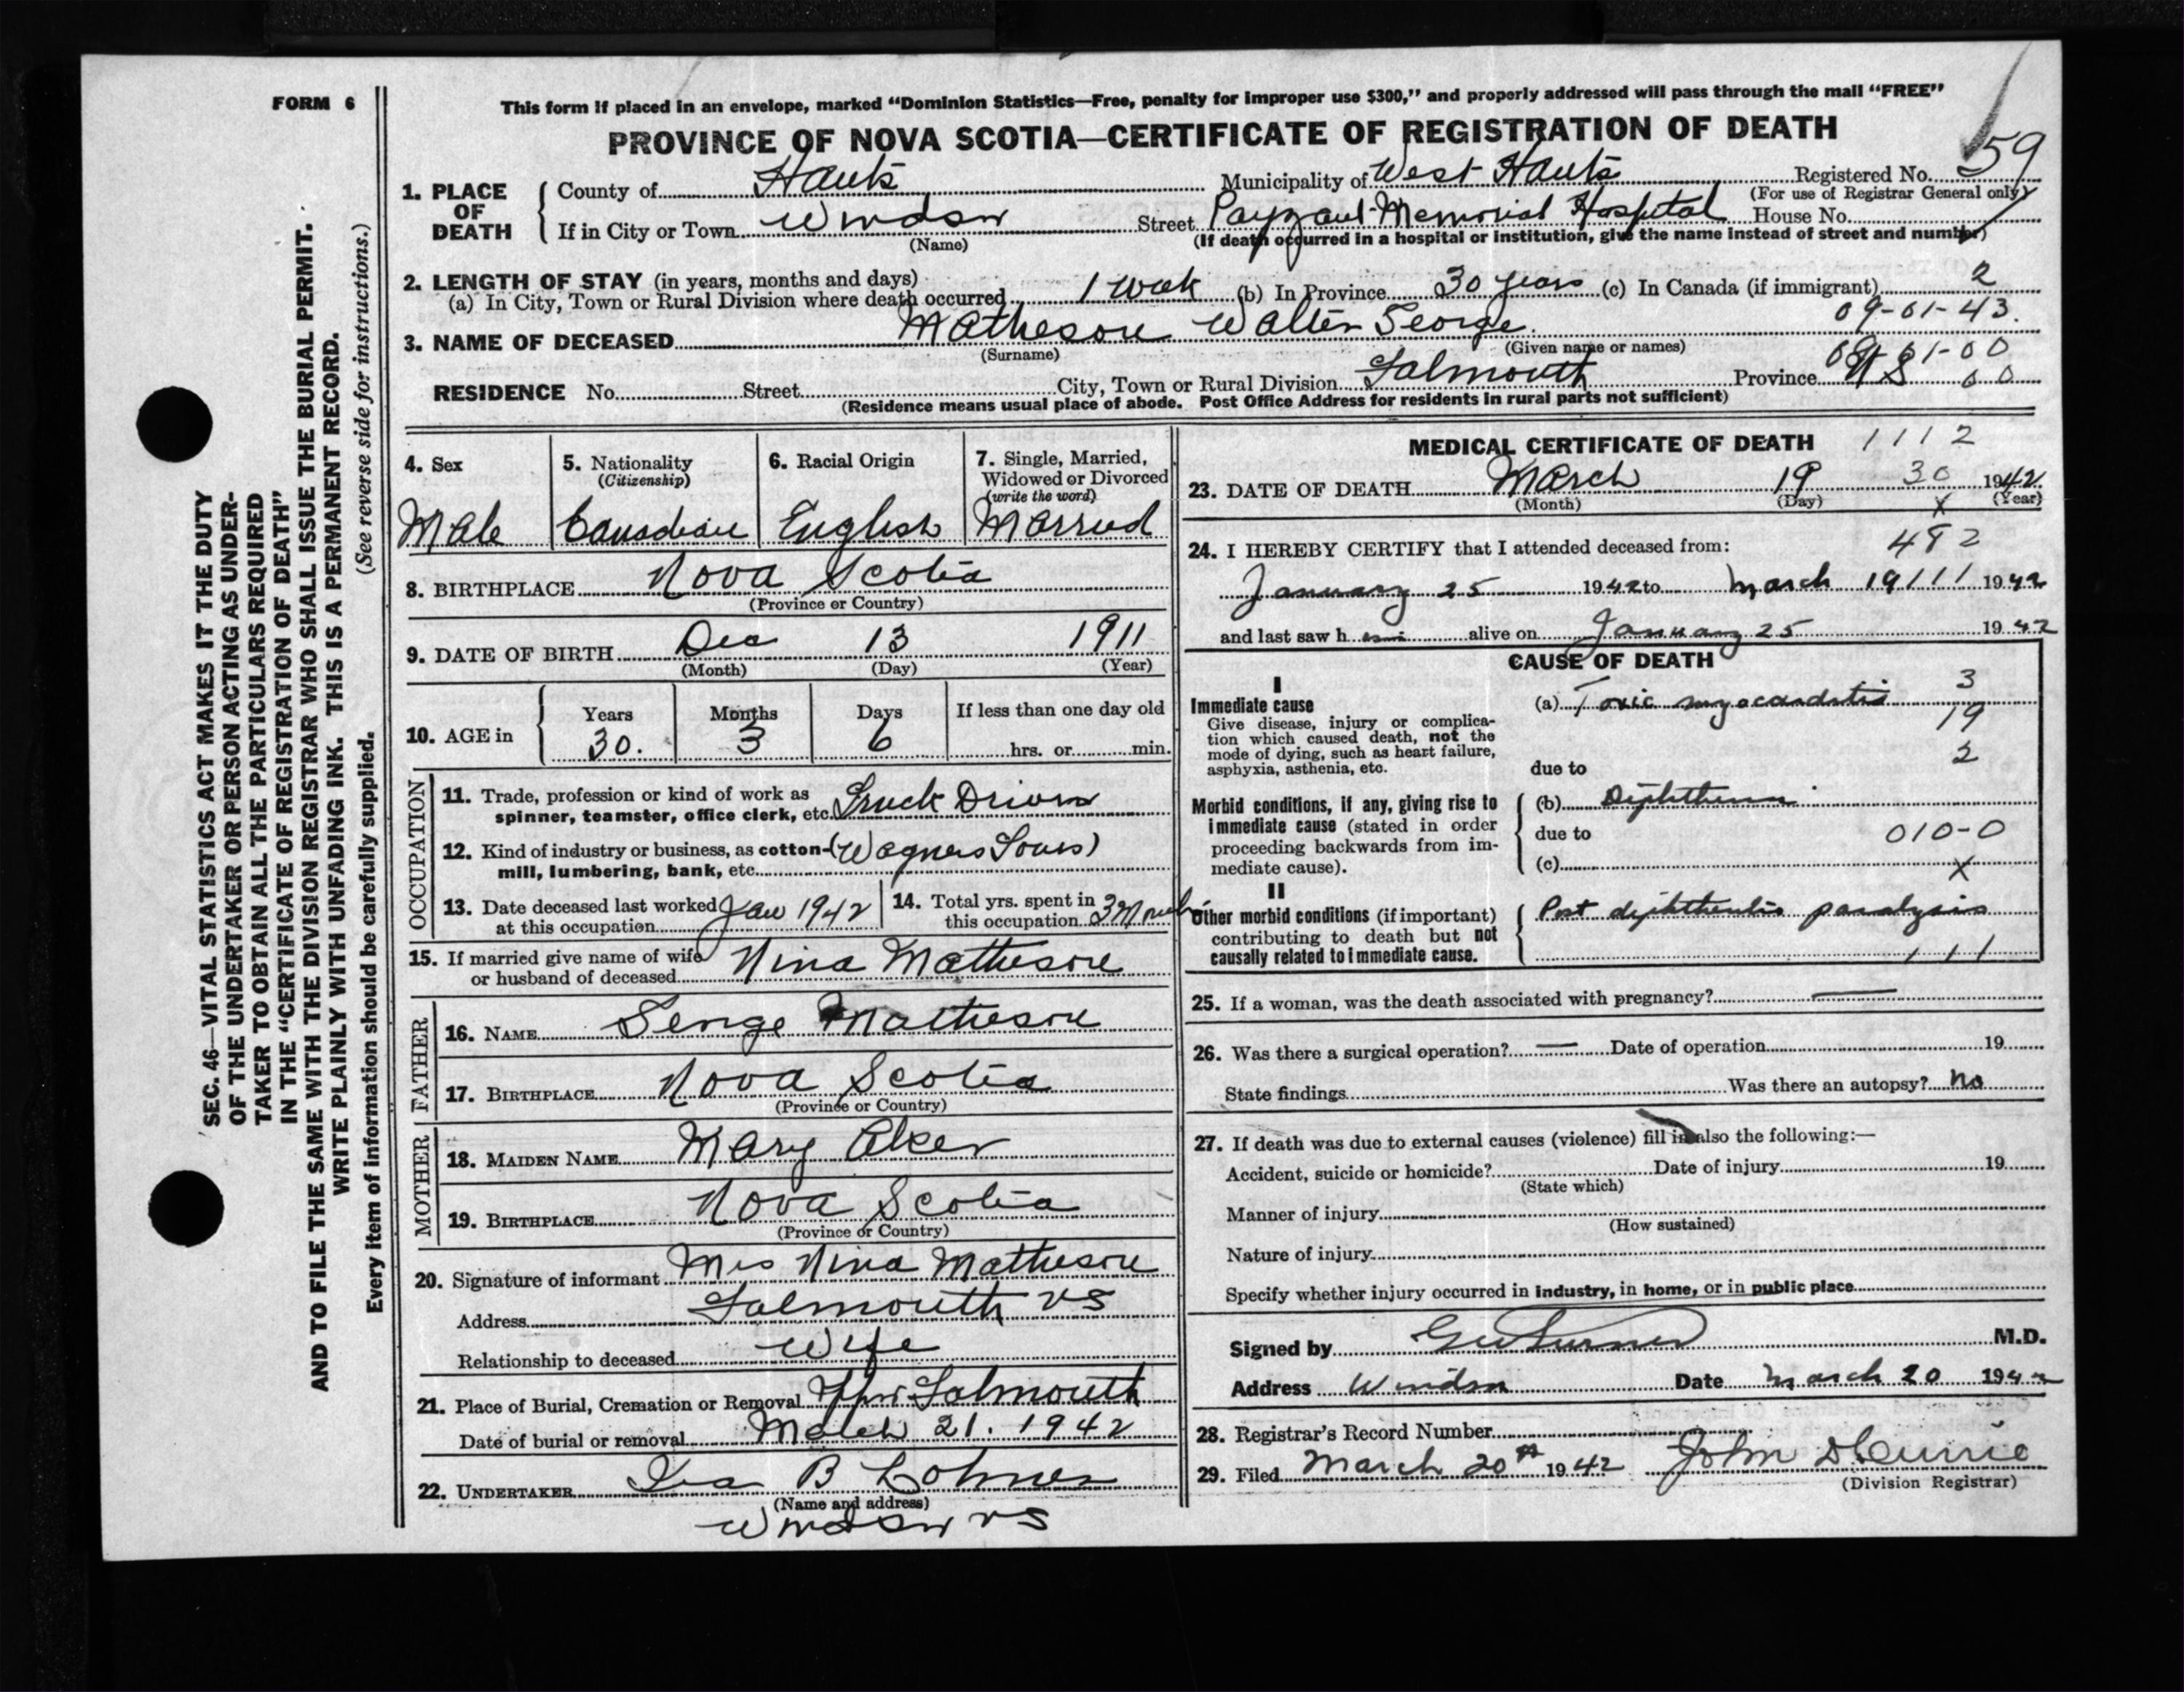 FORM 6
SEC. 46—VITAL STATISTICS ACT MAKES IT THE DUTY
OF THE UNDERTAKER OR PERSON ACTING AS UNDER-
TAKER TO OBTAIN ALL THE PARTICULARS REQUIRED
IN THE "CERTIFICATE OF REGISTRATION OF DEATH"
AND TO FILE THE SAME WITH THE DIVISION REGISTRAR WHO SHALL ISSUE THE BURIAL PERMIT.
WRITE PLAINLY WITH UNFADING INK. THIS IS A PERMANENT RECORD.
Every item of information should be carefully supplied. (See reverse side for instructions.)
This form if placed in an envelope, marked "Dominion Statistics—Free, penalty for improper use $300," and properly addressed will pass through the mail "FREE"
PROVINCE OF NOVA SCOTIA—CERTIFICATE OF REGISTRATION OF DEATH
1. PLACE OF DEATH
County of Hants Municipality of West Hants Registered No. 59
(For use of Registrar General only)
If in City or Town Windsor Street Payzant Memorial Hospital House No.
(Name) (If death occurred in a hospital or institution, give the name instead of street and number)
2. LENGTH OF STAY (in years, months and days)
(a) In City, Town or Rural Division where death occurred 1 week (b) In Province 30 years (c) In Canada (if immigrant) 2
09-01-43
3. NAME OF DECEASED Matheson Walter George
(Surname) (Given name or names)
01-00
RESIDENCE No. Street City, Town or Rural Division Falmouth Province NS 00
(Residence means usual place of abode. Post Office Address for residents in rural parts not sufficient)
4. Sex 5. Nationality 6. Racial Origin 7. Single, Married,
(Citizenship) Widowed or Divorced
(write the word)
Male Canadian English Married
8. BIRTHPLACE Nova Scotia
(Province or Country)
9. DATE OF BIRTH Dec 13 1911
(Month) (Day) (Year)
10. AGE in Years Months Days If less than one day old
30. 3 6 hrs. or min.
OCCUPATION
11. Trade, profession or kind of work as
spinner, teamster, office clerk, etc. Truck Driver
12. Kind of industry or business, as cotton-
mill, lumbering, bank, etc. (Wagners Sons)
13. Date deceased last worked
at this occupation Jan 1942
14. Total yrs. spent in
this occupation 3 months
15. If married give name of wife
or husband of deceased Nina Matheson
FATHER
16. NAME George Matheson
17. BIRTHPLACE Nova Scotia
(Province or Country)
MOTHER
18. MAIDEN NAME Mary Aker
19. BIRTHPLACE Nova Scotia
(Province or Country)
20. Signature of informant Mrs Nina Matheson
Address Falmouth NS
Relationship to deceased Wife
21. Place of Burial, Cremation or Removal Falmouth
Date of burial or removal March 21. 1942
22. UNDERTAKER Ira B
(Name and address)
Windsor NS
MEDICAL CERTIFICATE OF DEATH 1112
23. DATE OF DEATH March 19 30 1942
(Month) (Day) X (Year)
24. I HEREBY CERTIFY that I attended deceased from: 492
January 25 1942 to March 19 111 1942
and last saw him alive on January 25 1942
CAUSE OF DEATH
I
Immediate cause
Give disease, injury or complica-
tion which caused death, not the
mode of dying, such as heart failure,
asphyxia, asthenia, etc.
(a) Toxic myocarditis 3
19
2
due to
Morbid conditions, if any, giving rise to
immediate cause (stated in order
proceeding backwards from im-
mediate cause).
(b) Diphtheria
due to 010-0
(c) X
II
Other morbid conditions (if important)
contributing to death but not
causally related to immediate cause.
Post diphtheritic paralysis
111
25. If a woman, was the death associated with pregnancy? —
26. Was there a surgical operation? — Date of operation 19
State findings Was there an autopsy? No
27. If death was due to external causes (violence) fill in also the following:—
Accident, suicide or homicide? Date of injury 19
(State which)
Manner of injury
(How sustained)
Nature of injury
Specify whether injury occurred in industry, in home, or in public place
Signed by Turner M.D.
Address Windsor Date March 20 1942
28. Registrar's Record Number
29. Filed March 20th 1942 John D Currie
(Division Registrar)